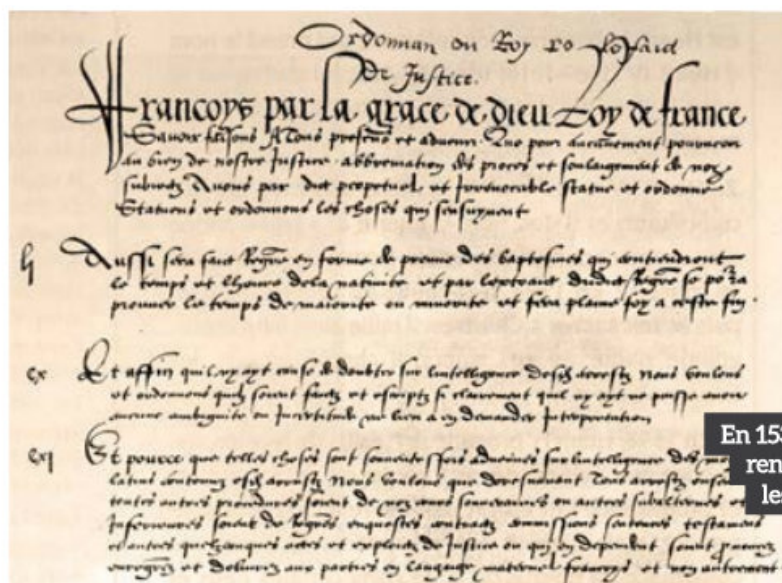 Ordonnan du Roy
de Justice.
Francoys par la grace de dieu Roy de france
Savoir faisons A tous presens et advenir Que pour aucunement pourveoir
au bien de nostre Justice abbreviation des proces et soulaigement de noz
subiectz Avons par edict perpetuel et irrevocable statue et ordonne
Statuons et ordonnons les choses qui sensuyvent
li Aussi sera faict Regre en forme de preuve des baptesmes qui contiendront
le temps et lheure de la nativite et par lextraict dudict Regre se pora
prouver le temps de maiorite ou minorite et fera plaine foy a ceste fin
cx Et affin quil ny ayt cause de doubter sur lintelligence desdictz arrestz Nous voulons
et ordonnons quilz soient faictz et escriptz si clairement quil ny ayt ne puisse avoir
aucune ambiguite ou incertitude ne lieu a en demander interpretation
cxi Et pource que telles choses sont souventesfois advenues sur lintelligence des
latins contenuz esdictz arrestz Nous voulons que doresnavant Tous arrestz
toutes autres procedures soient de noz cours souveraines ou autres subalternes et
Inferieures soient de Regres enquestes contractz commissions sentences testamens
et autres quelzconques actes et exploictz de Justice ou qui en dependent soient
enregrez et delivrez aux parties en langage maternel francoys et non autrement
En 153
ren
les